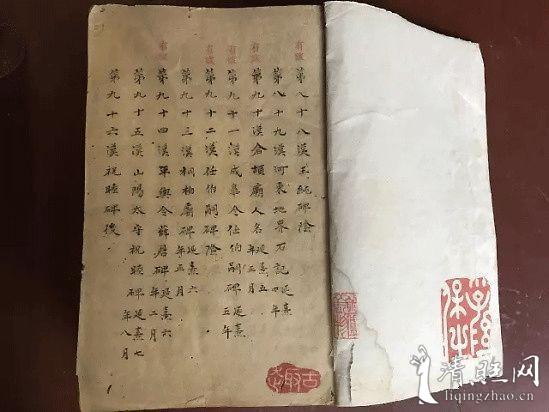 有跋
第八十八漢王純碑陰
第八十九漢河東地界石記 延熹四年
有跋
第九十漢倉頡廟人名 延熹五年 月
有跋
第九十一漢成皋令任伯嗣碑 延熹五年
有跋
第九十二漢任伯嗣碑陰
第九十三漢桐柏廟碑 延熹六年正月
有跋
第九十四漢平輿令薛君碑 延熹六年二月
第九十五漢山陽太守祝睦碑 延熹七年八月
第九十六漢祝睦碑後
清照网
liqingzhao.cn